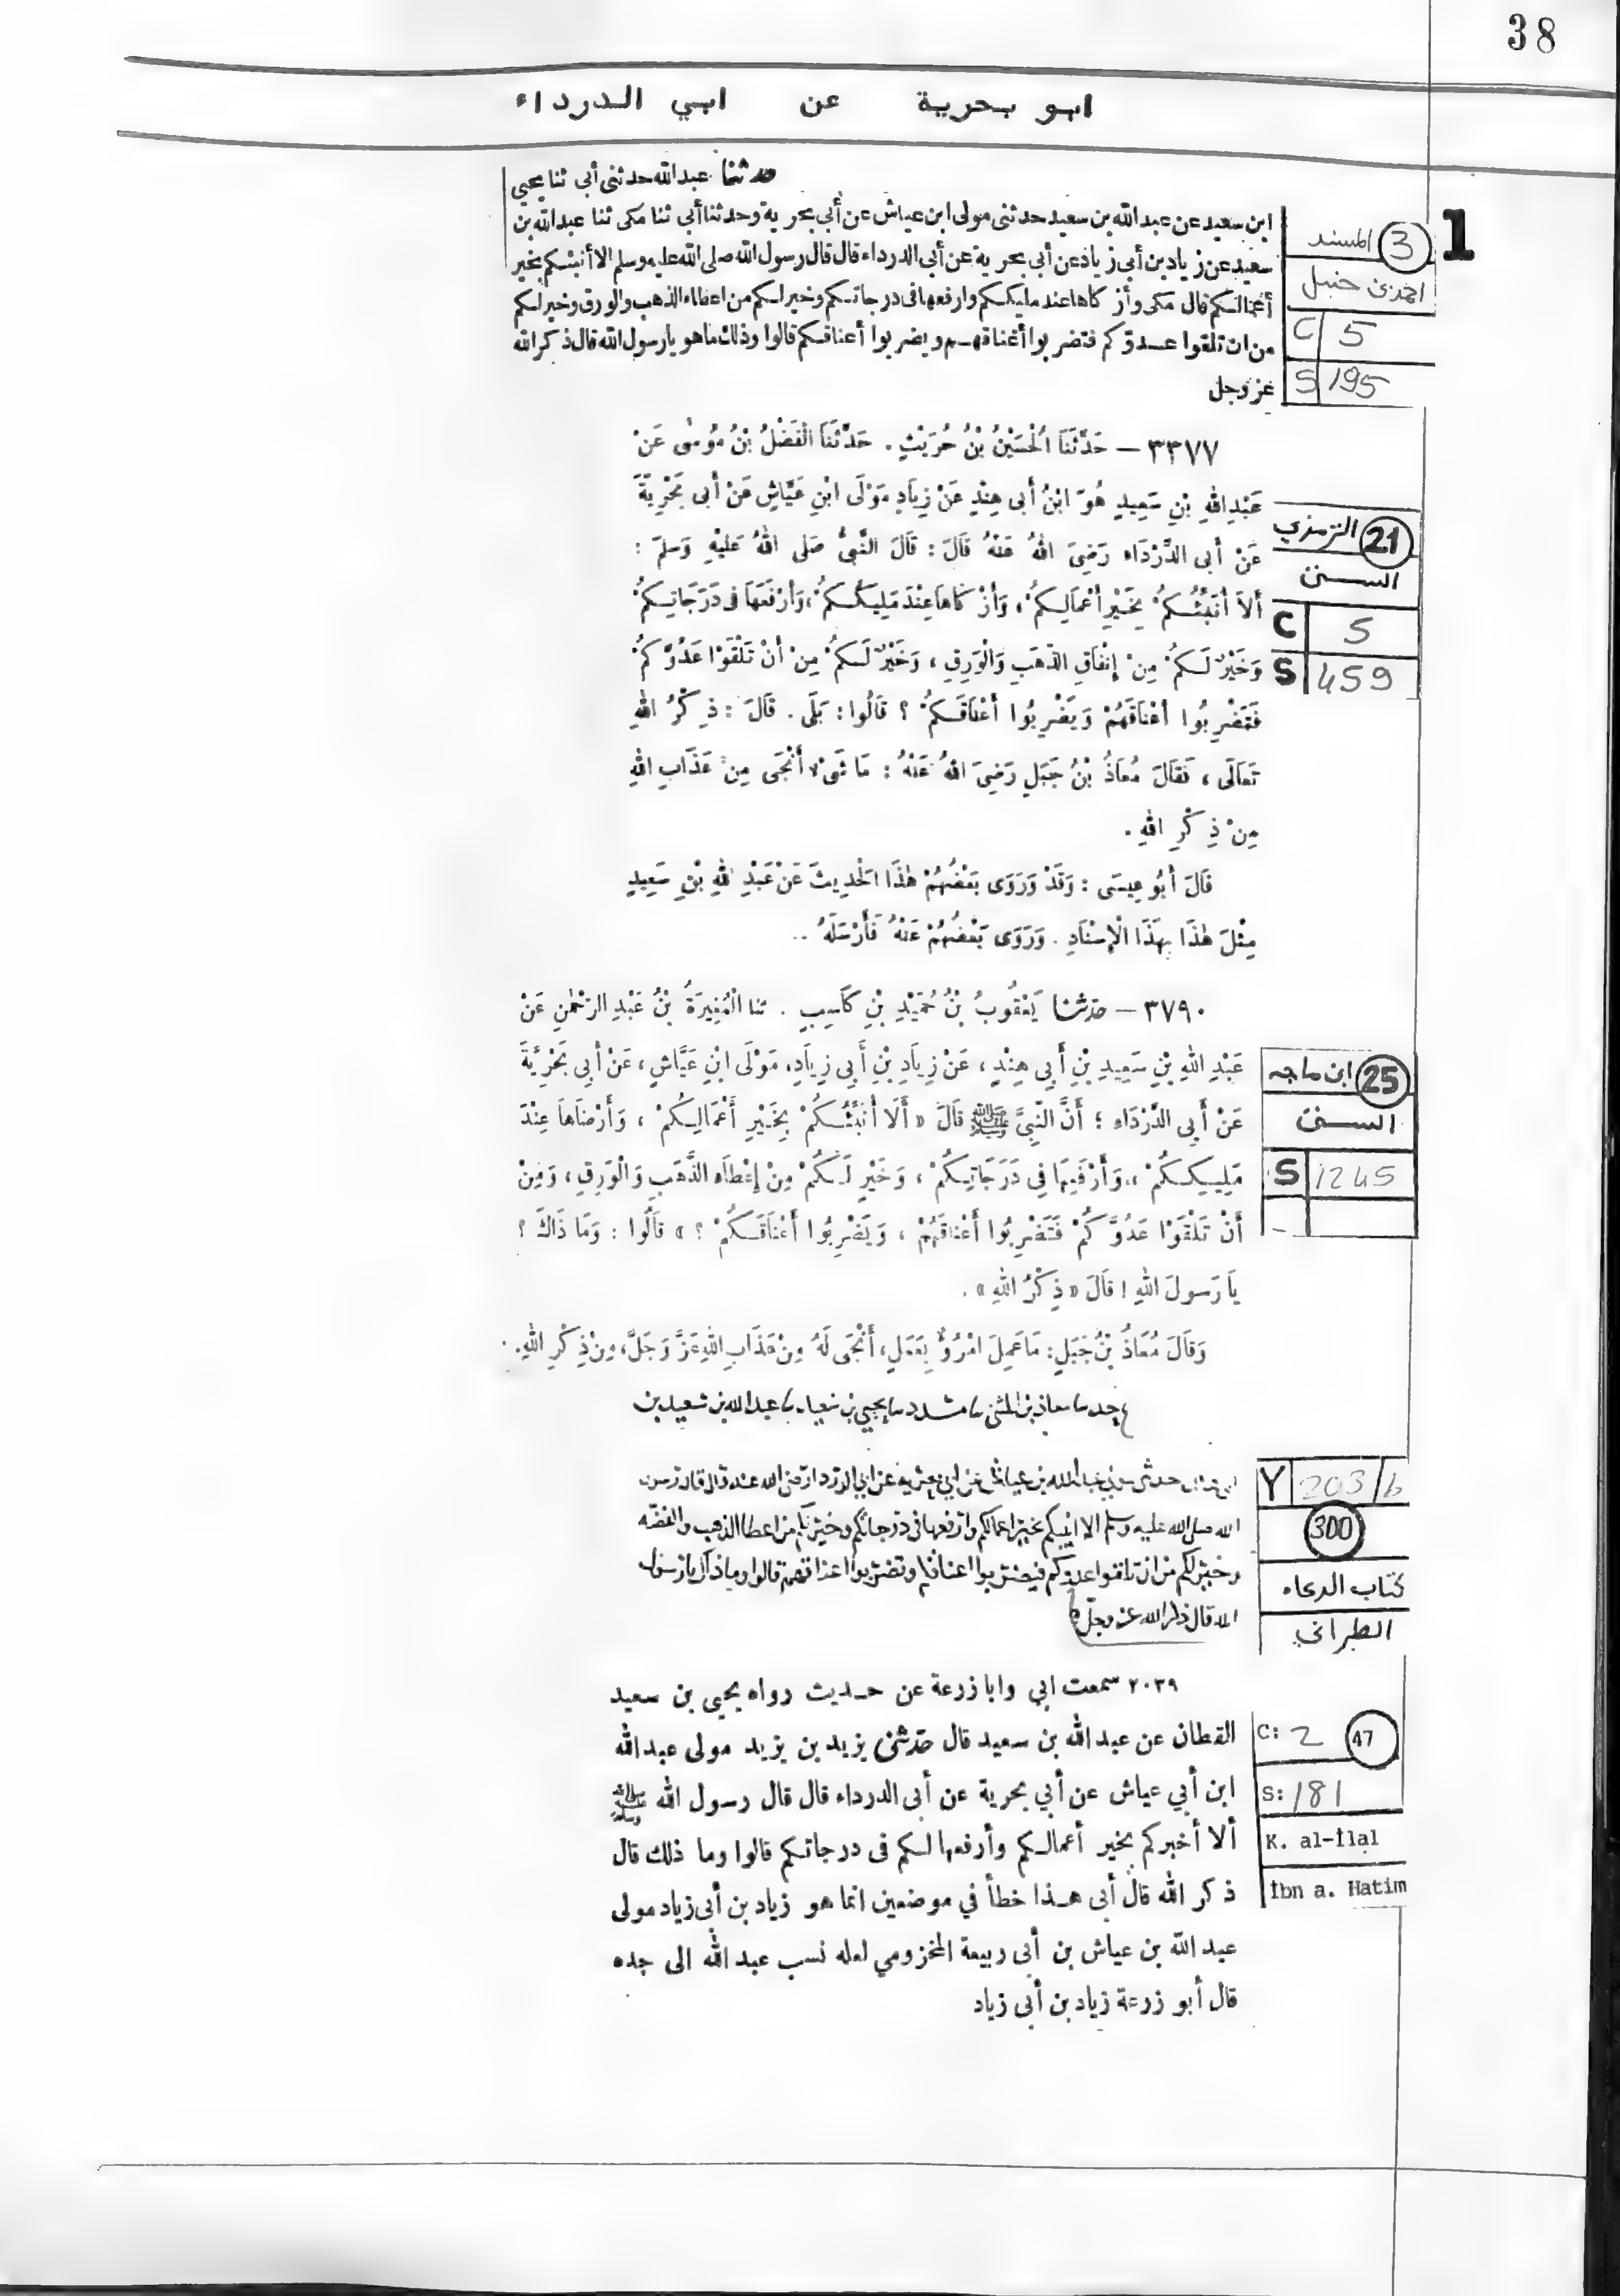 38
ابو بحرية عن ابي الدرداء
حدثنا عبدالله حدثنى أبى ثنا يحيى
ابن سعيد عن عبدالله بن سعيد حدثنى مولى ابن عياش عن أبى بحرية وحدثنا أبى ثنا مكى ثنا عبدالله بن
سعيد عن زياد بن أبى زياد عن أبى بحرية عن أبى الدرداء قال قال رسول الله صلى الله عليه وسلم الا أنبئكم بخير
أعمالكم قال مكى وأزكاها عند مليككم وارفعها فى درجاتكم وخير لكم من اعطاء الذهب والورق وخير لكم
من ان تلقوا عدوّكم فتضربوا أعناقهم ويضربوا أعناقكم قالوا وذلك ما هو يا رسول الله قال ذكر الله
عز وجل
1
3 المسند
احمد بن حنبل
C 5
S 195
٣٣٧٧ – حَدَّثَنَا الْحُسَيْنُ بْنُ حُرَيْثٍ . حَدَّثَنَا الْفَضْلُ بْنُ مُوسَى عَنْ
عَبْدِ اللهِ بْنِ سَعِيدٍ هُوَ ابْنُ أَبِى هِنْدٍ عَنْ زِيَادٍ مَوْلَى ابْنِ عَيَّاشٍ عَنْ أَبِى بَحْرِيَّةَ
عَنْ أَبِى الدَّرْدَاءِ رَضِىَ اللهُ عَنْهُ قَالَ : قَالَ النَّبِىُّ صَلى اللهُ عَلَيْهِ وَسَلمَ :
أَلاَ أُنَبِّئُكُمْ بِخَيْرِ أَعْمَالِكُمْ ، وَأَزْكَاهَا عِنْدَ مَلِيكِكُمْ ، وَأَرْفَعَهَا فى دَرَجَاتِكُمْ
وَخَيْرٌ لَكُمْ مِنْ إِنْفَاقِ الذَّهَبِ وَالْوَرِقِ ، وَخَيْرٌ لَكُمْ مِنْ أَنْ تَلْقَوْا عَدُوَّكُمْ
فَتَضْرِبُوا أَعْنَاقَهُمْ وَيَضْرِبُوا أَعْنَاقَكُمْ ؟ قَالُوا : بَلَى . قَالَ : ذِكْرُ اللهِ
تَعَالَى ، فَقَالَ مُعَاذُ بْنُ جَبَلٍ رَضِىَ اللهُ عَنْهُ : مَا شَىْءٌ أَنْجَى مِنْ عَذَابِ اللهِ
مِنْ ذِكْرِ اللهِ .
قَالَ أَبُو عِيسَى : وَقَدْ وَرَوَى بَعْضُهُمْ هٰذَا الْحَدِيثَ عَنْ عَبْدِ اللهِ بْنِ سَعِيدٍ
مِثْلَ هٰذَا بِهٰذَا الْإِسْنَادِ . وَرَوَى بَعْضُهُمْ عَنْهُ فَأَرْسَلَهُ ..
21 الترمذي
السنن
C 5
S 459
٣٧٩٠ – حدثنا يَعْقُوبُ بْنُ حُمَيْدِ بْنِ كَاسِبٍ . ثنا الْمُغِيرَةُ بْنُ عَبْدِ الرَّحْمٰنِ عَنْ
عَبْدِ اللهِ بْنِ سَعِيدِ بْنِ أَبِي هِنْدٍ ، عَنْ زِيَادِ بْنِ أَبِي زِيَادٍ، مَوْلَى ابْنِ عَيَّاشٍ ، عَنْ أَبِي بَحْرِيَّةَ
عَنْ أَبِي الدَّرْدَاءِ ؛ أَنَّ النَّبِيَّ ﷺ قَالَ « أَلَا أُنَبِّئُكُمْ بِخَيْرِ أَعْمَالِكُمْ ، وَأَرْضَاهَا عِنْدَ
مَلِيكِكُمْ ، وَأَرْفَعِهَا فِي دَرَجَاتِكُمْ ، وَخَيْرٍ لَكُمْ مِنْ إِعْطَاءِ الذَّهَبِ وَالْوَرِقِ ، وَمِنْ
أَنْ تَلْقَوْا عَدُوَّكُمْ فَتَضْرِبُوا أَعْنَاقَهُمْ ، وَيَضْرِبُوا أَعْنَاقَكُمْ ؟ » قَالُوا : وَمَا ذَاكَ ؟
يَا رَسُولَ اللهِ ! قَالَ « ذِكْرُ اللهِ » .
وَقَالَ مُعَاذُ بْنُ جَبَلٍ: مَا عَمِلَ امْرُؤٌ بِعَمَلٍ، أَنْجَى لَهُ مِنْ عَذَابِ اللهِ عَزَّ وَجَلَّ، مِنْ ذِكْرِ اللهِ.
25 ابن ماجه
السنن
S 1245
معاذ بن المثنى مسدد يحيى بن سعيد عبد الله بن سعيد بن
حدثنى عن ابي بحرية عن ابي الدرداء رضى الله عنه قال قال رسول
الله صلى الله عليه وسلم الا انبيكم بخير اعمالكم وارفعها فى درجاتكم وخير لكم من اعطا الذهب والفضه
وخير لكم من ان تلقوا عدوكم فيضربوا اعناقكم وتضربوا اعناقهم قالوا وما ذاك يا رسول
الله قال ذكر الله عز وجل
Y 203/b
300
كتاب الدعاء
الطبراني
٢٠٣٩ سمعت ابي وابا زرعة عن حديث رواه يحيى بن سعيد
القطان عن عبد الله بن سعيد قال حدثني يزيد بن يزيد مولى عبد الله
ابن أبي عياش عن أبي بحرية عن أبى الدرداء قال قال رسول الله ﷺ
ألا أخبركم بخير أعمالكم وأرفعها لكم فى درجاتكم قالوا وما ذلك قال
ذكر الله قال أبى هذا خطأ في موضعين انما هو زياد بن أبى زياد مولى
عبد الله بن عياش بن أبى ربيعة المخزومي لعله نسب عبد الله الى جده
قال أبو زرعة زياد بن أبى زياد
C: 2 47
S: 181
K. al-İlal
İbn a. Hatim